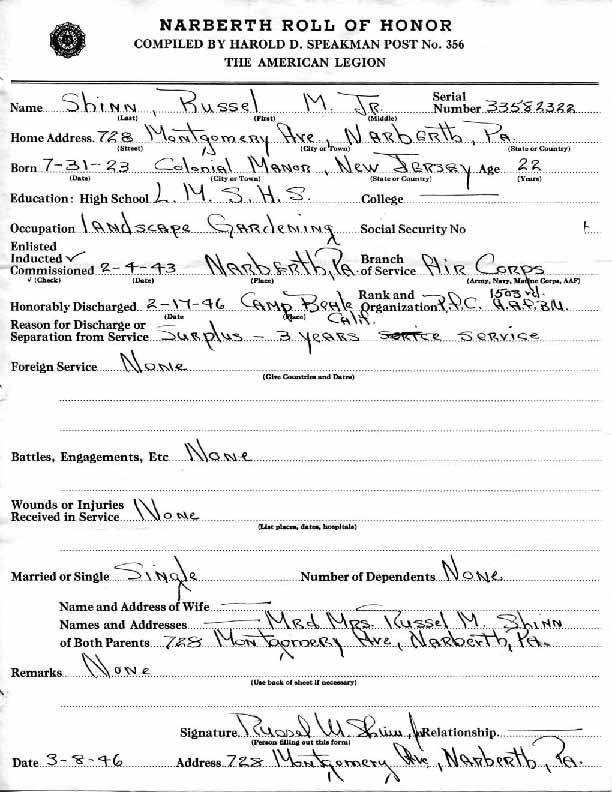 NARBERTH ROLL OF HONOR
COMPILED BY HAROLD D. SPEAKMAN POST No. 356
THE AMERICAN LEGION
Name Shinn, Russel M. Jr. Serial Number 33582322
(Last) (First) (Middle)
Home Address 728 Montgomery Ave, Narberth, Pa.
(Street) (City or Town) (State or Country)
Born 7-31-23 Colonial Manor, New Jersey Age 22
(Date) (City or Town) (State or Country) (Years)
Education: High School L. M. S. H. S. College
Occupation Landscape Gardening Social Security No
Enlisted
Inducted ✓
Commissioned 2-4-43 Narberth, Pa. Branch of Service Air Corps
(Check) (Date) (Place) (Army, Navy, Marine Corps, AAF)
Honorably Discharged 2-17-46 Camp Beale Calif. Rank and Organization P.F.C. 1503rd. A.A.F.B.U.
(Date (Place)
Reason for Discharge or
Separation from Service Surplus - 3 years service
Foreign Service None
(Give Countries and Dates)
Battles, Engagements, Etc None
Wounds or Injuries
Received in Service None
(List places, dates, hospitals)
Married or Single Single Number of Dependents None
Name and Address of Wife
Names and Addresses Mr & Mrs. Russel M. Shinn
of Both Parents 728 Montgomery Ave, Narberth, Pa.
Remarks None
(Use back of sheet if necessary)
Signature Russel M. Shinn, Jr Relationship
(Person filling out this form)
Date 3-8-46 Address 728 Montgomery Ave, Narberth, Pa.